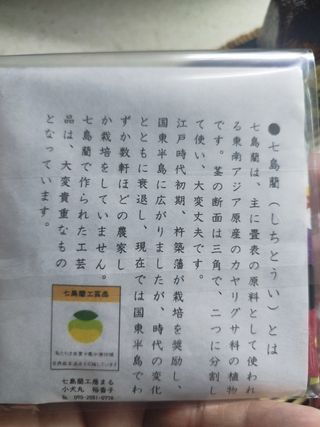 ●七島藺（しちとうい）とは
七島藺は、主に畳表の原料として使われ
る東南アジア原産のカヤツリグサ科の植物
です。茎の断面は三角で、二つに分割し
て使い、大変丈夫です。
江戸時代初期、杵築藩が栽培を奨励し、
国東半島に広がりましたが、時代の変化
とともに衰退し、現在では国東半島でわ
ずか数軒ほどの農家し
か栽培をしていません。
七島藺で作られた工芸
品は、大変貴重なもの
となっています。
七島藺工芸品
七島藺工房まる
小犬丸 裕香子